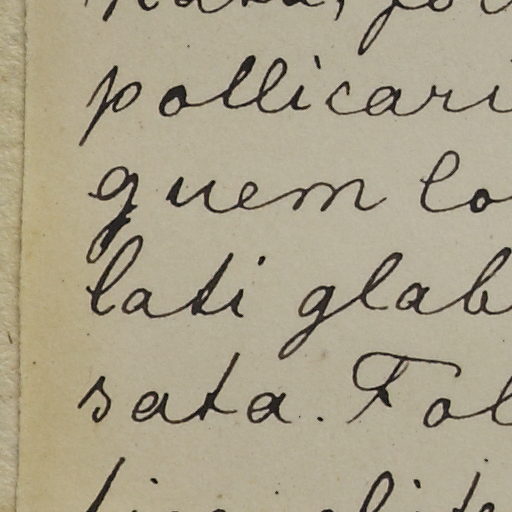 pollicari
quem lo
lati glab
sata. Fol